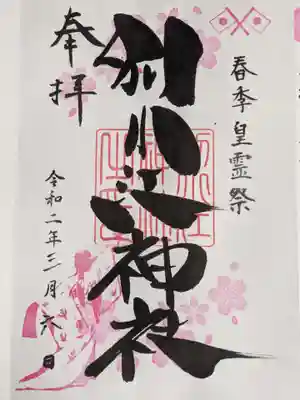 春季皇霊祭
奉拝
別小江神社
令和二年三月六日